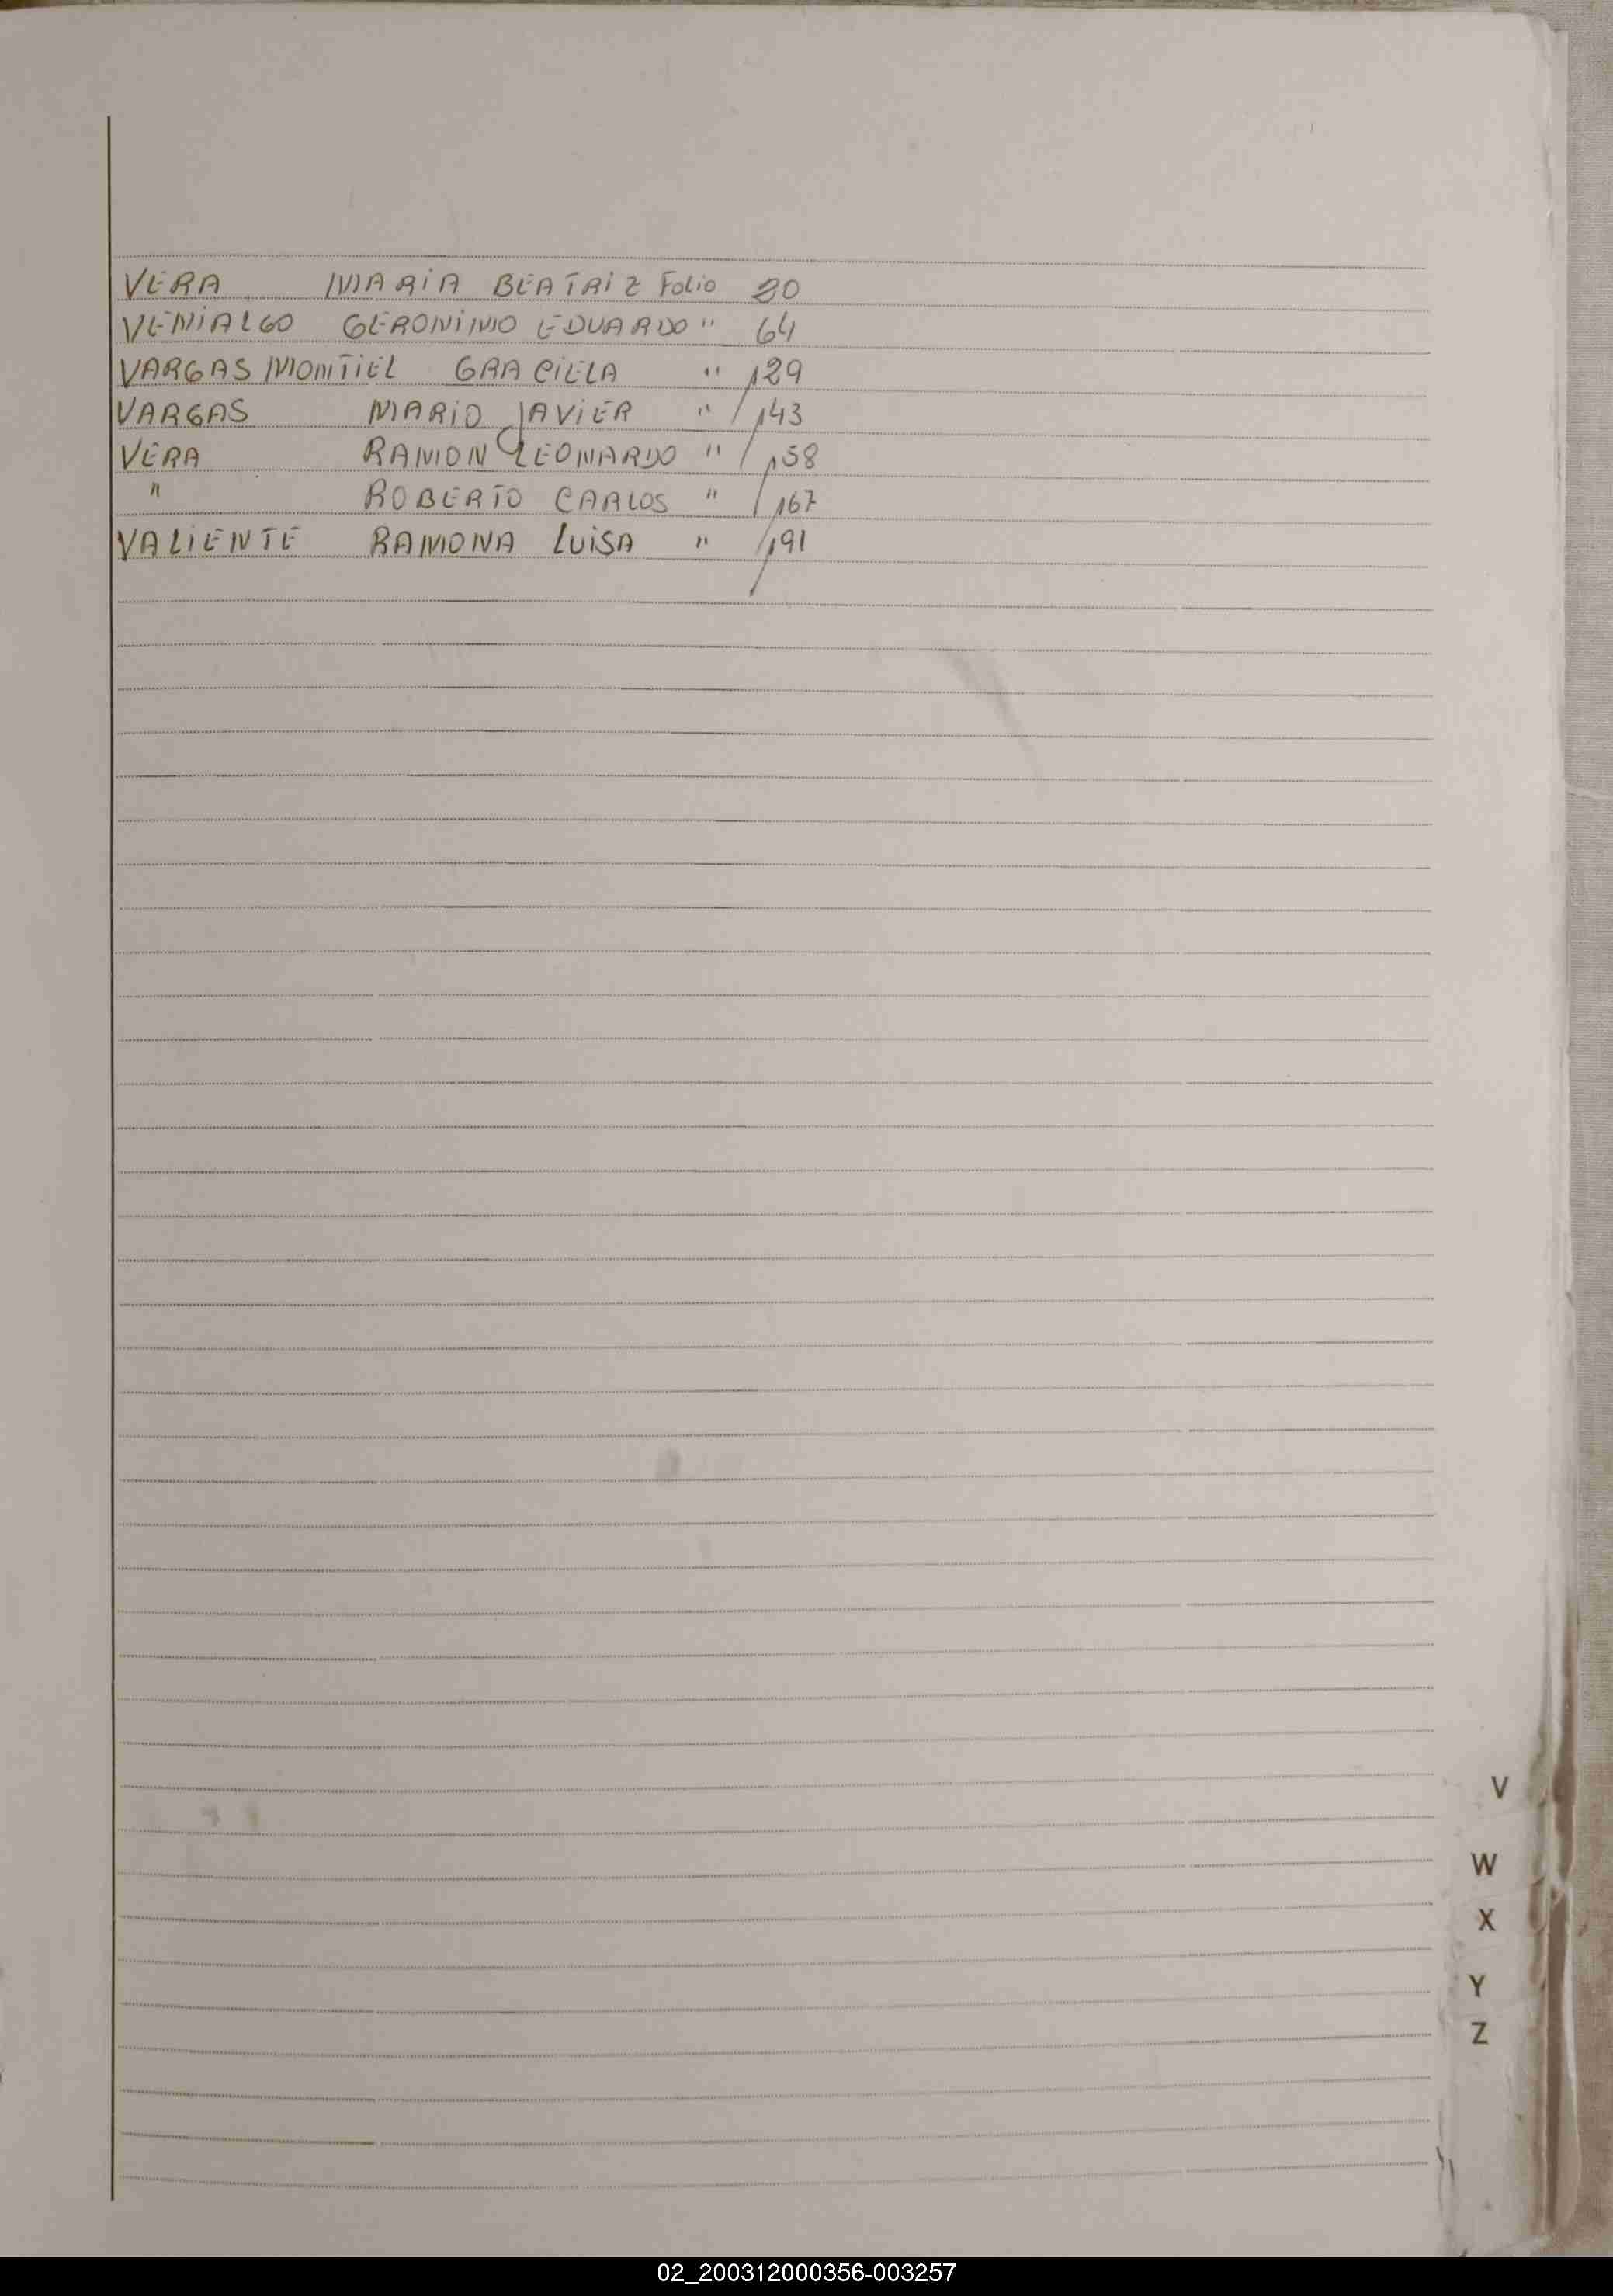 VERA MARIA BEATRIZ Folio 20
VENIALGO GERONIMO EDUARDO " 64
VARGAS MONTIEL GRACIELA " 129
VARGAS MARIO JAVIER " 143
VERA RAMON LEONARDO " 158
" ROBERTO CARLOS " 167
VALIENTE RAMONA LUISA " 191
V
W
X
Y
Z
02_200312000356-003257